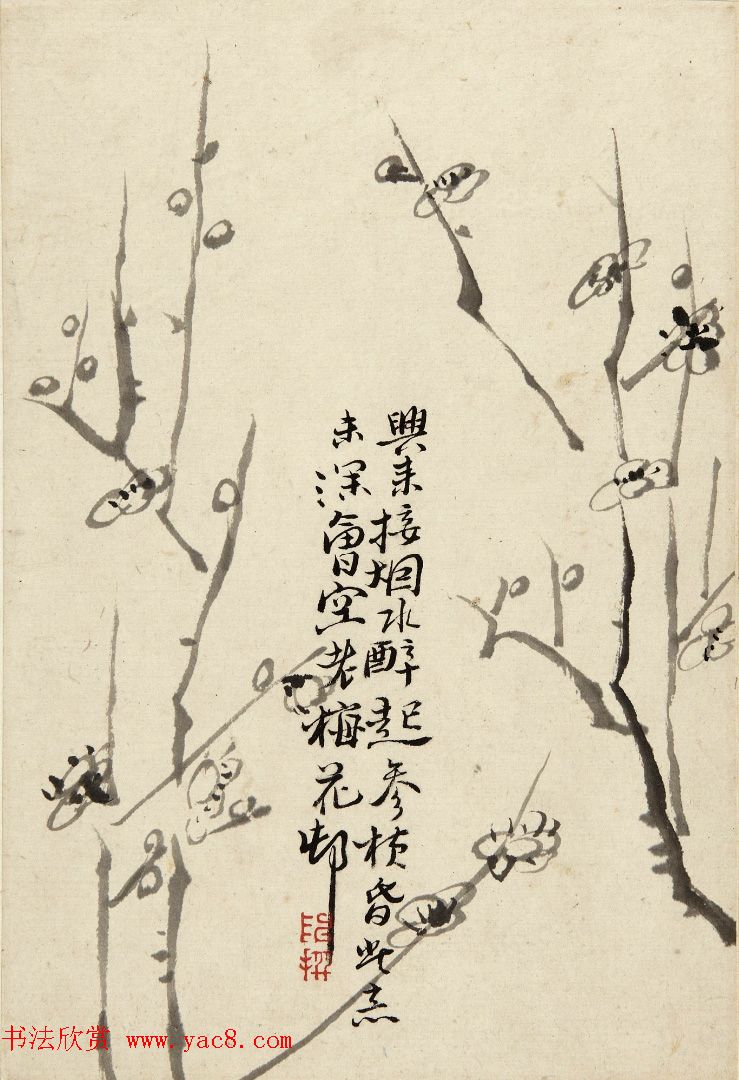 興来接烟水醉起参横昏此志
未深會空老梅花邨
书法欣赏 www.yac8.com